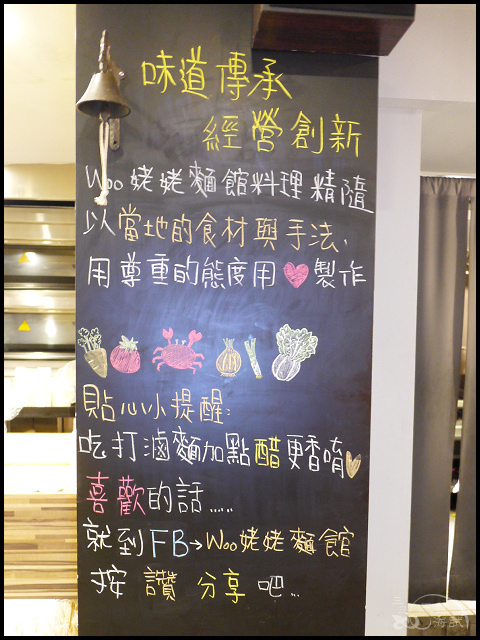 味道傳承
經營創新
Woo姥姥麵館料理精隨
以當地的食材與手法,
用尊重的態度用♥製作
貼心小提醒:
吃打滷麵加點醋更香唷
喜歡的話.....
就到FB→Woo姥姥麵館
按讚分享吧...